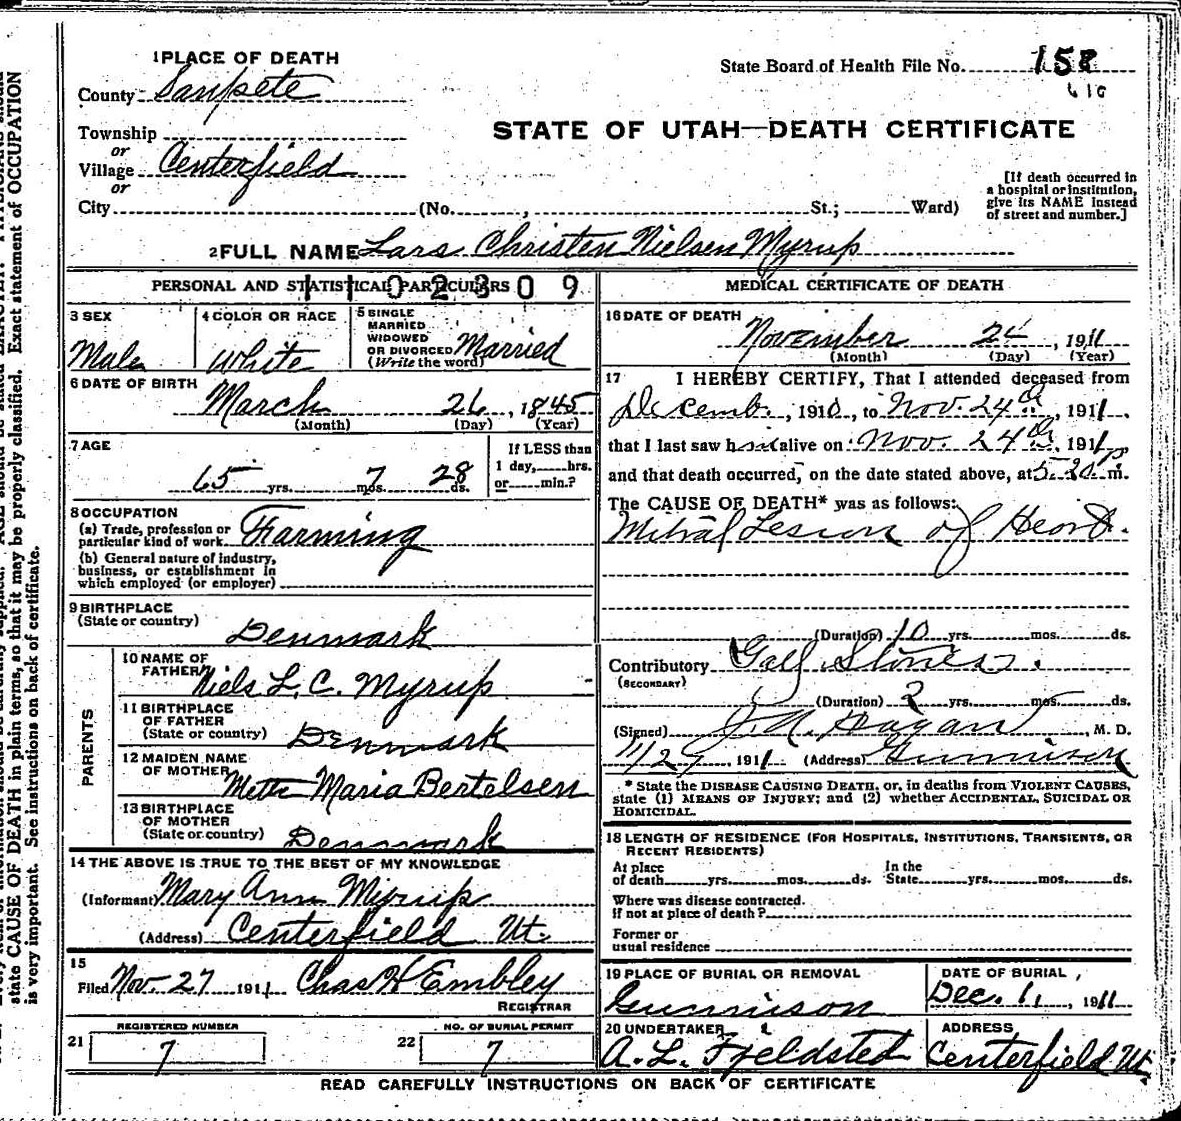 1 PLACE OF DEATH
County Sanpete
Township
or
Village Centerfield
or
City (No. , St.; Ward)
State Board of Health File No. 158
610
STATE OF UTAH—DEATH CERTIFICATE
[If death occurred in
a hospital or institution,
give its NAME instead
of street and number.]
2 FULL NAME Lars Christen Nielsen Myrup
PERSONAL AND STATISTICAL PARTICULARS
1102309
3 SEX
Male
4 COLOR OR RACE
White
5 SINGLE
MARRIED
WIDOWED
OR DIVORCED Married
(Write the word)
6 DATE OF BIRTH
March 26, 1845
(Month) (Day) (Year)
7 AGE
65 yrs. 7 mos. 28 ds.
If LESS than
1 day, hrs.
or min.?
8 OCCUPATION
(a) Trade, profession or
particular kind of work Farming
(b) General nature of industry,
business, or establishment in
which employed (or employer)
9 BIRTHPLACE
(State or country)
Denmark
PARENTS
10 NAME OF
FATHER Niels L. C. Myrup
11 BIRTHPLACE
OF FATHER
(State or country) Denmark
12 MAIDEN NAME
OF MOTHER Mette Maria Bertelsen
13 BIRTHPLACE
OF MOTHER
(State or country) Denmark
14 THE ABOVE IS TRUE TO THE BEST OF MY KNOWLEDGE
(Informant) Mary Ann Myrup
(Address) Centerfield Ut.
15
Filed Nov. 27 1911 Chas H Embley
REGISTRAR
REGISTERED NUMBER
21 7
NO. OF BURIAL PERMIT
22 7
MEDICAL CERTIFICATE OF DEATH
16 DATE OF DEATH
November 24, 1911
(Month) (Day) (Year)
17 I HEREBY CERTIFY, That I attended deceased from
Decemb., 1910, to Nov. 24th, 1911,
that I last saw him alive on Nov. 24th, 1911,
and that death occurred, on the date stated above, at 5-30 p m.
The CAUSE OF DEATH* was as follows:
Mitral Lesion of Heart.
(Duration) 10 yrs. mos. ds.
Contributory Gall Stones.
(SECONDARY)
(Duration) 2 yrs. mos. ds.
(Signed) Hagan, M. D.
11/27, 1911 (Address) Gunnison
* State the DISEASE CAUSING DEATH, or, in deaths from VIOLENT CAUSES,
state (1) MEANS OF INJURY; and (2) whether ACCIDENTAL, SUICIDAL OR
HOMICIDAL.
18 LENGTH OF RESIDENCE (FOR HOSPITALS, INSTITUTIONS, TRANSIENTS, OR
RECENT RESIDENTS)
At place
of death yrs. mos. ds.
In the
State yrs. mos. ds.
Where was disease contracted.
If not at place of death?
Former or
usual residence
19 PLACE OF BURIAL OR REMOVAL
Gunnison
DATE OF BURIAL
Dec. 1, 1911
20 UNDERTAKER
A. L. Fjeldsted
ADDRESS
Centerfield Ut.
READ CAREFULLY INSTRUCTIONS ON BACK OF CERTIFICATE
state CAUSE OF DEATH in plain terms, so that it may be properly classified. Exact statement of OCCUPATION
is very important. See instructions on back of certificate.